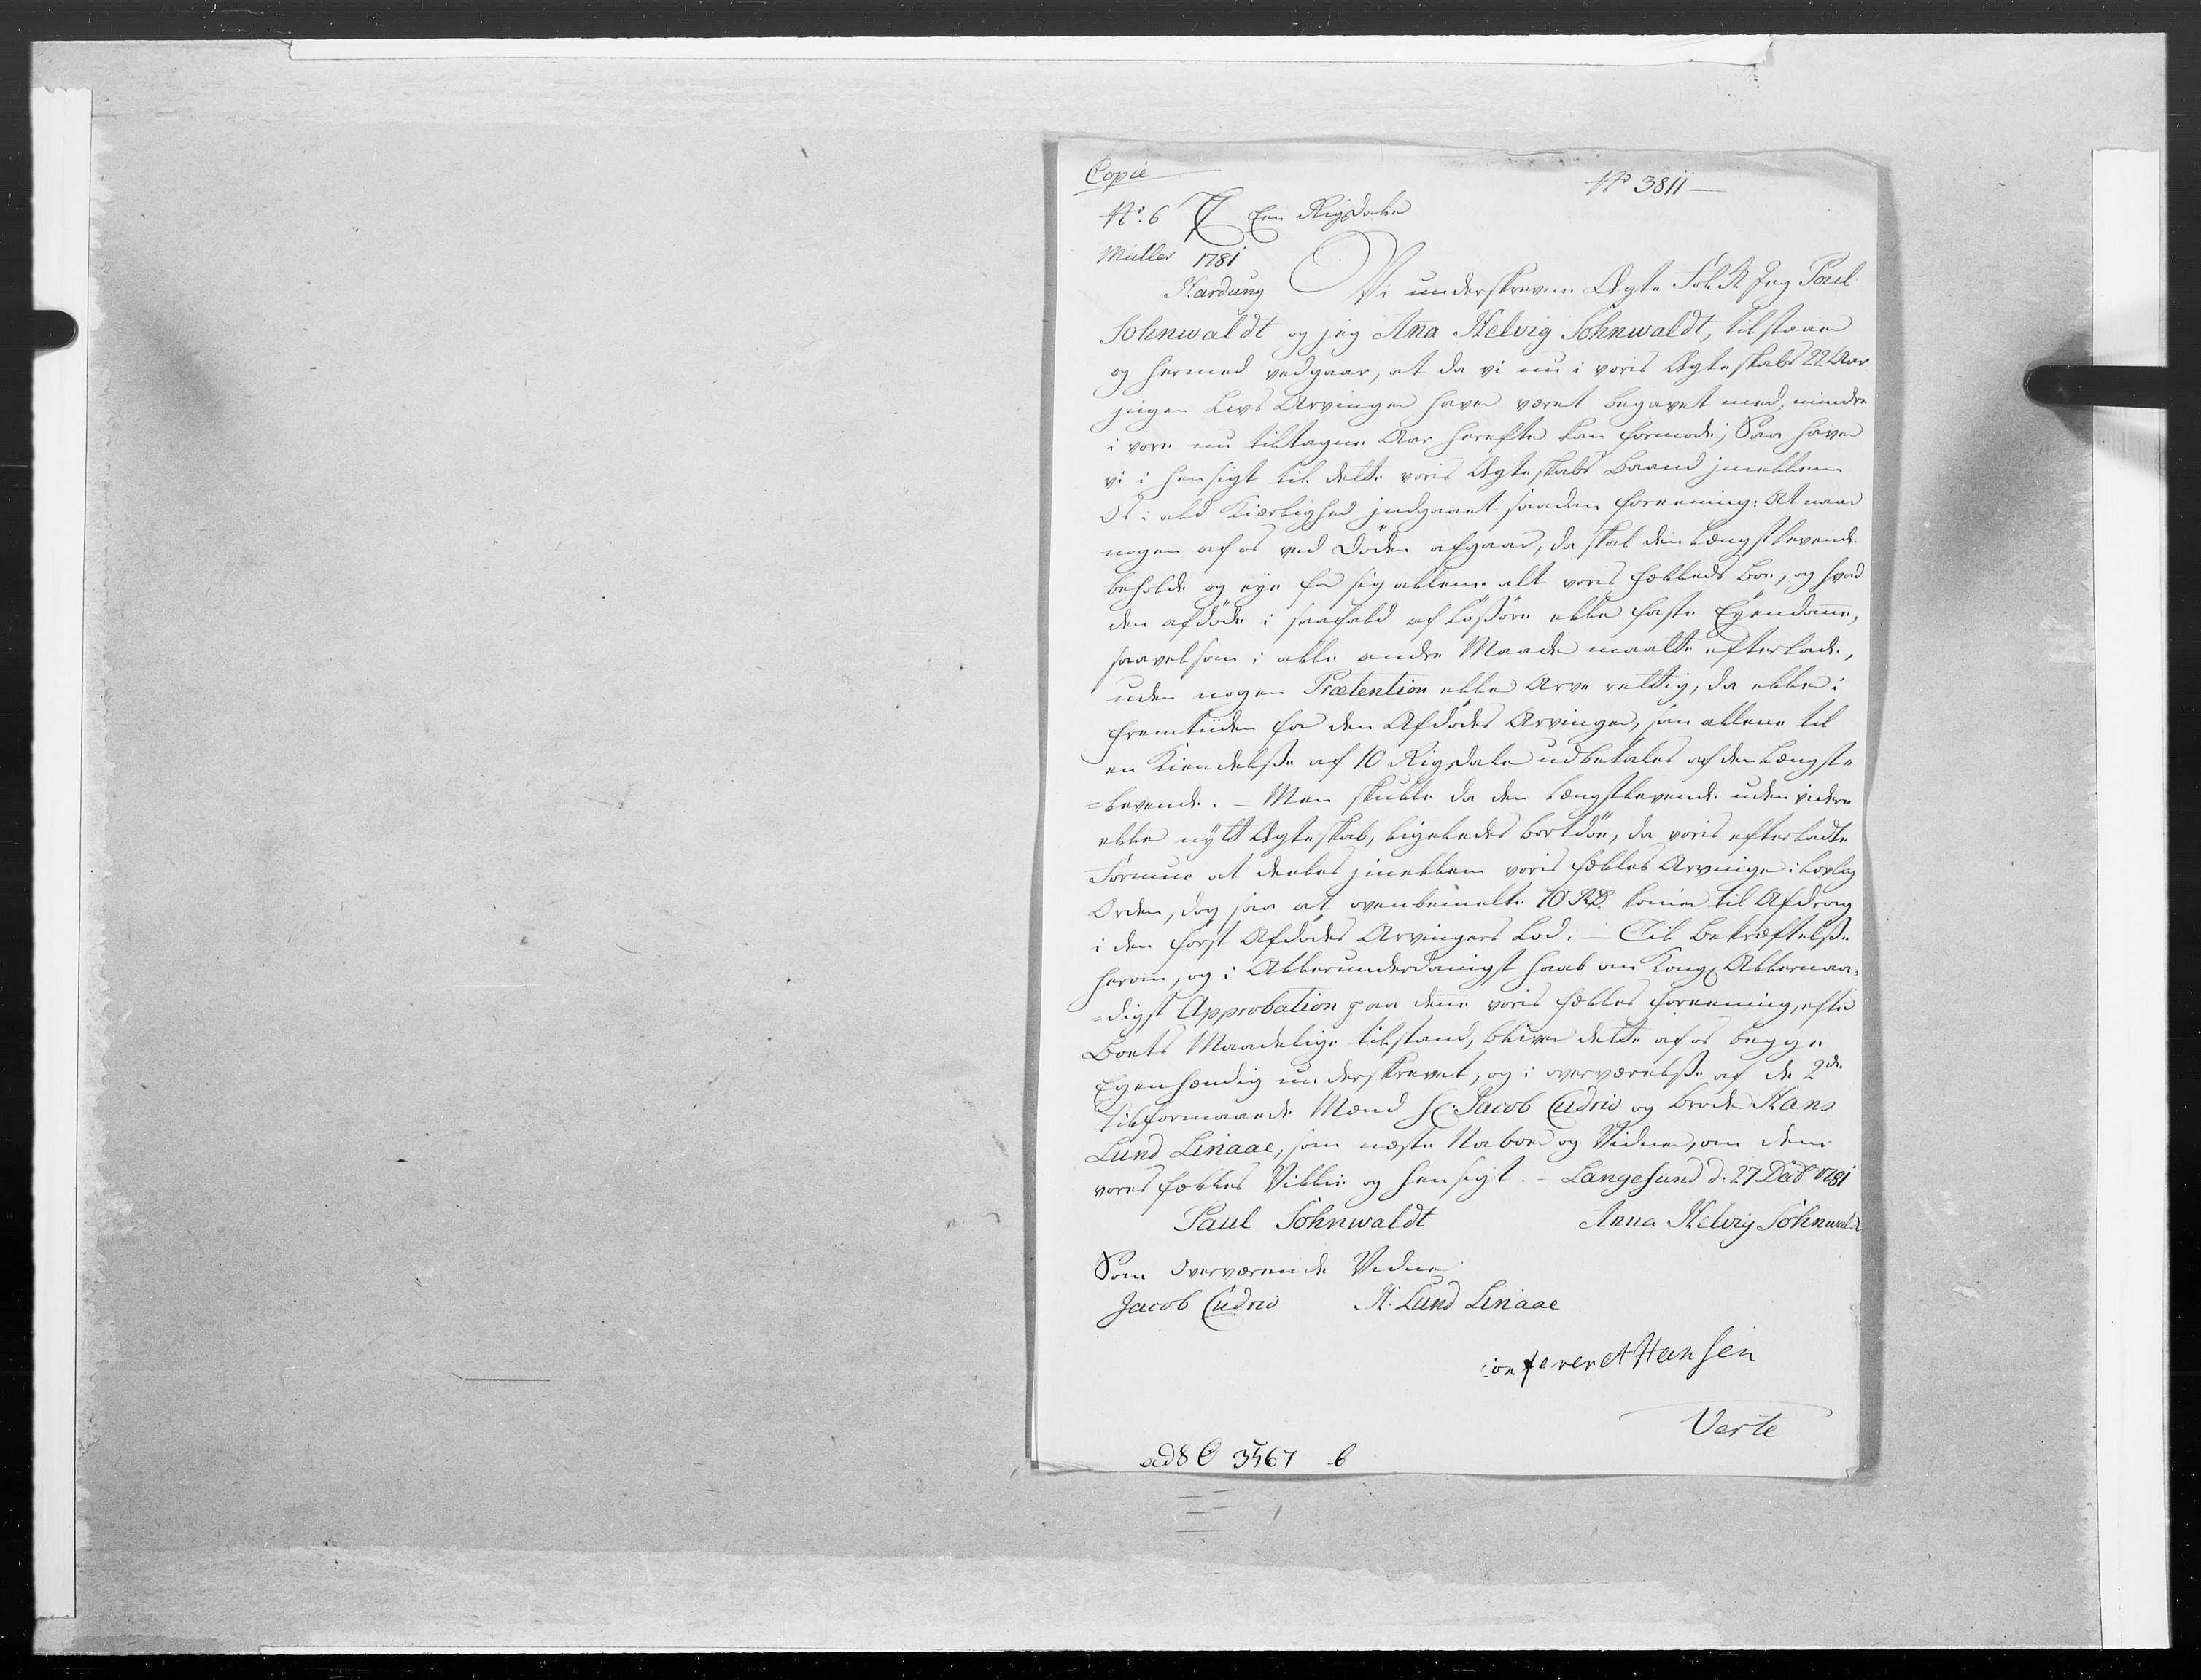 Copie
No 3811
No. 6 Een Rigsdaler
Müller 1781
Hardung Vi underskrevne Ægte Folk Jeg Paul
Sohnwaldt og jeg Ana Helvig Sohnwaldt, tilstaaer
og hermed vedgaar, at da vi nu i voris Ægteskabs 22 Aar
jngen Livs Arvinger haver været begavet med, mindre
i vore nu tiltagne Aar herefter kan formode; Saa haver
vi i hensigt til dette voris Ægteskabs Baand jmellem
Os i ald Kiærlighed jndgaaet saadan foreening: At naar
nogen af os ved Döden afgaar, da skal den Længstlevende
beholde og eye for sig allene alt voris fælleds Boe, og hvad
den afdöde i saafald af Lössöre eller faste Eyendome,
saavelsom i alle andre Maader maatte efterlade,
uden nogen Prætention eller Arve rettig, da eller i
fremtiiden for den Afdödes Arvinger, som allene til
en Kiendelsse af 10 Rigsdaler udbetales af den Længste
=levende. – Men skulle da den længstlevende uden videre
eller nytt Ægteskab, ligeledes bortdöe, da voris efterladte
Formue at deeles jmellem voris fælles Arvinger i lovlig
Orden, dog saa at ovenbemelte 10 RD. komer til Afdrag
i den först Afdödes Arvingers Lod. – Til Bekræftelsse
herom, og i Allerunderdanigst haab om Kongl. Allernaa-
=digst Approbation paa denne voris fælles foreening, efter
Boets Maadelige tilstand, bliver dette af os begge
Egenhændig underskrevet, og i overværelsse af de 2de
tilformaaede Mænd Sr. Jacob Cudrio og broder Hans
Lund Linaae, som næste Naboer og Vidner, om denne
vores fælles Villie og hensigt. – Langesund d. 27 Decbr 1781
Paul Sohnwaldt Anna Helvig Sohnwaldt
Som Overværende Vidner
Jacob Cudrio H. Lund Linaae
confereret Hansen
Verte
ad 8 3567 b